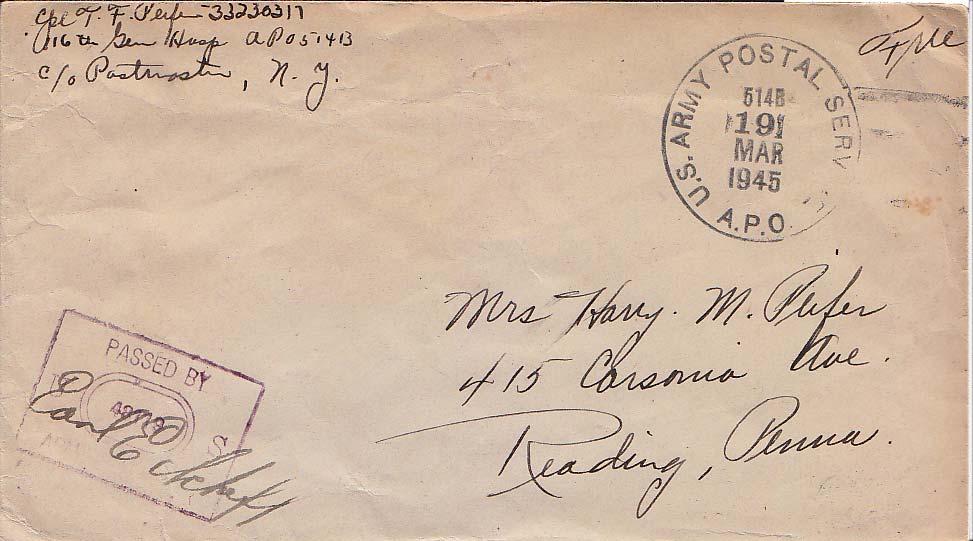 Cpl T. F. Peifer 33230317
116th Gen Hosp APO 514B
c/o Postmaster, N. Y.
Free
U.S. ARMY POSTAL SERV
514B
19
MAR
1945
A.P.O.
Mrs Harry. M. Peifer
415 Carsonia Ave.
Reading, Penna.
PASSED BY
S